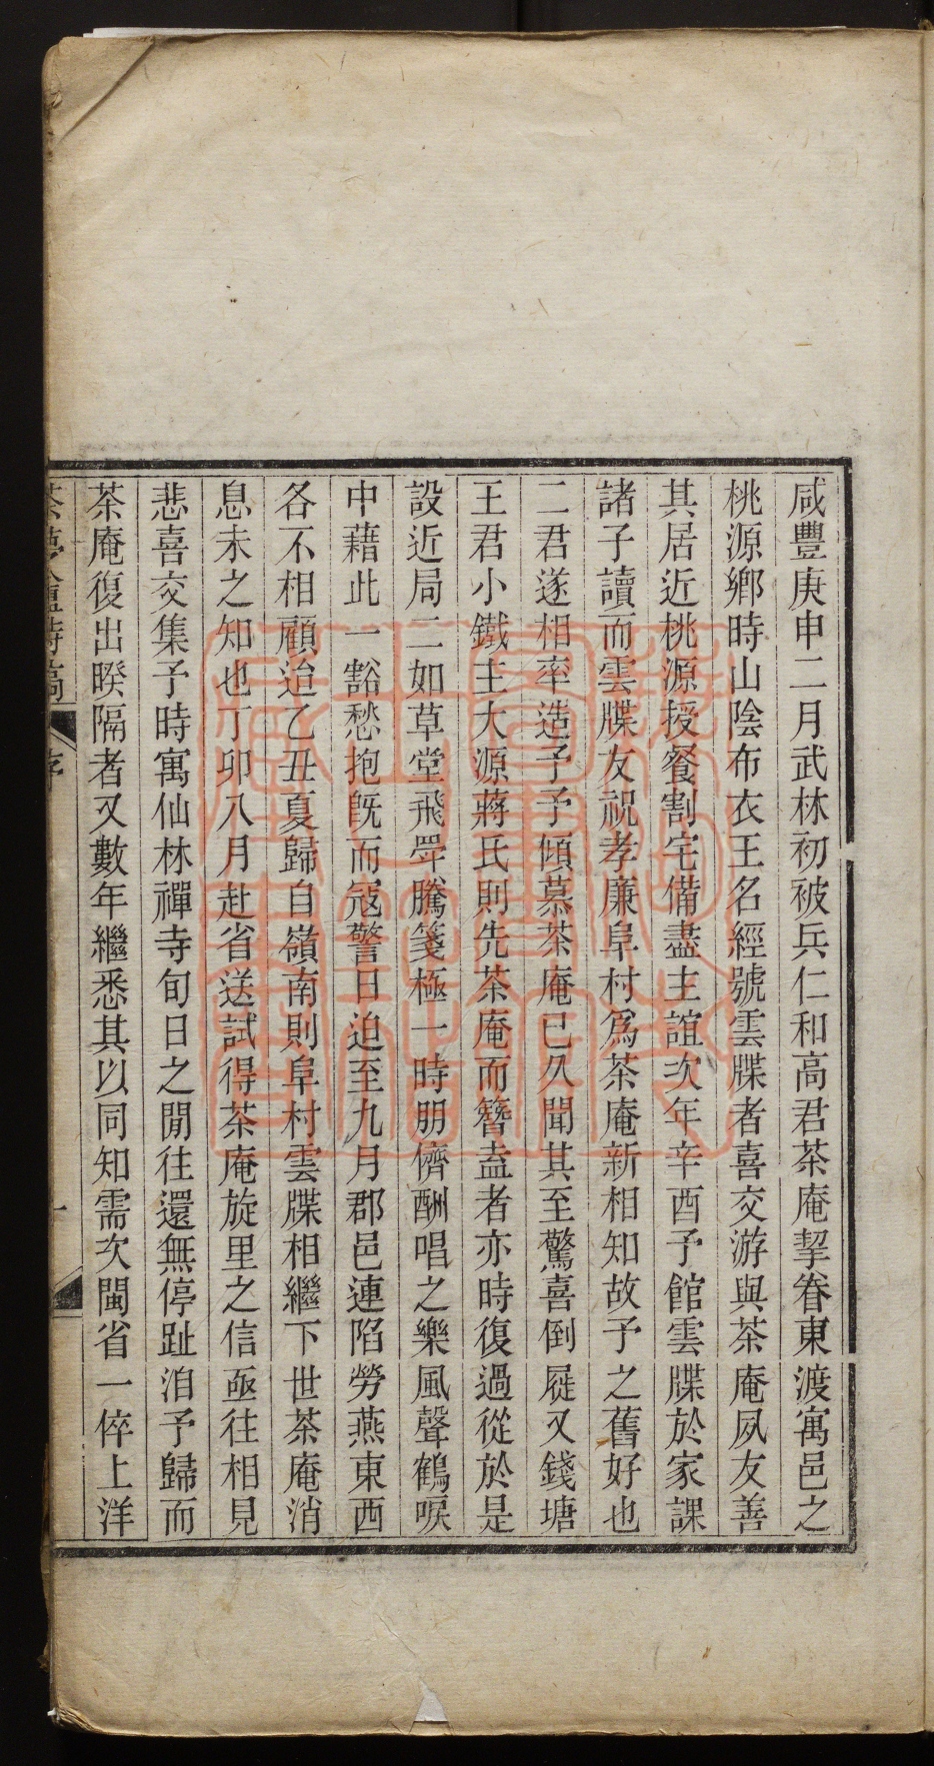 咸豐庚申二月武林初被兵仁和高君茶庵挈眷東渡寓邑之
桃源鄉時山陰布衣王名經號雲牒者喜交游與茶庵夙友善
其居近桃源授餐割宅備盡主誼次年辛酉予館雲牒於家課
諸子讀而雲牒友祝孝廉阜村爲茶庵新相知故予之舊好也
二君遂相率造予予傾慕茶庵已久聞其至驚喜倒屣又錢塘
王君小鐵主大源蔣氏則先茶庵而簪盍者亦時復過從於是
設近局二如草堂飛斝騰箋極一時朋儕酬唱之樂風聲鶴唳
中藉此一豁愁抱旣而寇警日迫至九月郡邑連陷勞燕東西
各不相顧迨乙丑夏歸自嶺南則阜村雲牒相繼下世茶庵消
息未之知也丁卯八月赴省送試得茶庵旋里之信亟往相見
悲喜交集予時寓仙林禪寺旬日之閒往還無停趾洎予歸而
茶庵復出暌隔者又數年繼悉其以同知需次閩省一倅上洋
茶夢盦詩稿 序 一